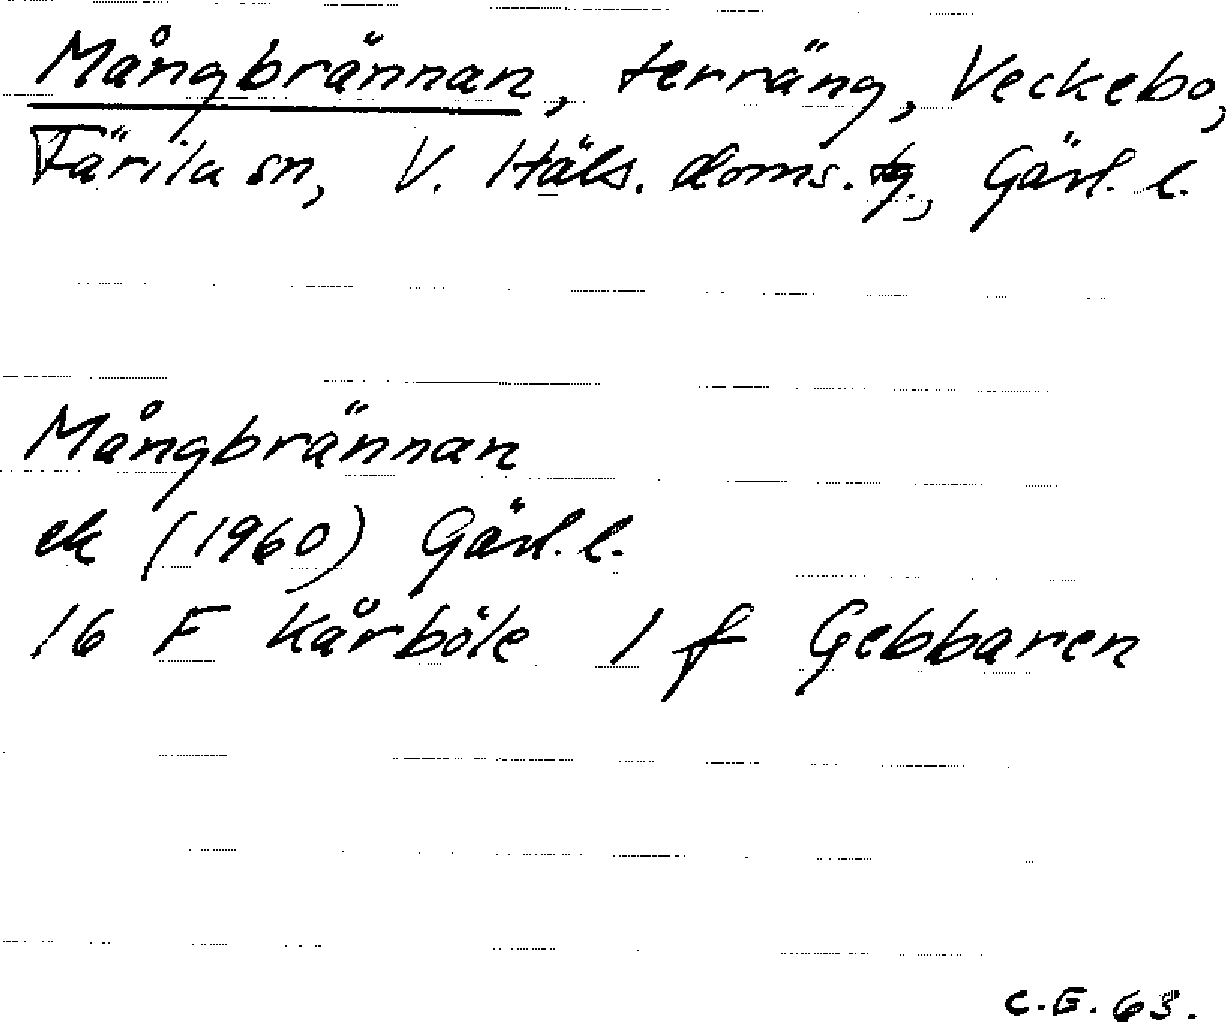 Mångbrännan, terräng, Veckebo,
Färila sn, V. Häls. doms. tg., Gävl. l.
Mångbrännan
ek (1960) Gävl. l.
16 F Kårböle 1 f Gebbaren
C.G. 63.